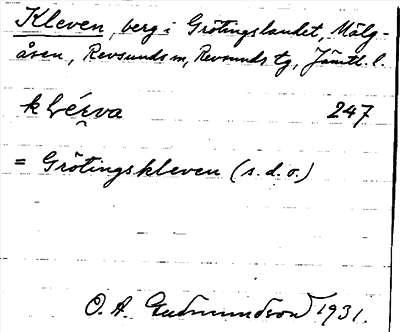 Kleven, berg i Grötingslandet, Mälg-
åsen, Revsunds sn, Revsunds tg, Jämtl. l.
klérva 247
= Grötingskleven (s. d. o.)
O. A. Gudmundson 1931.